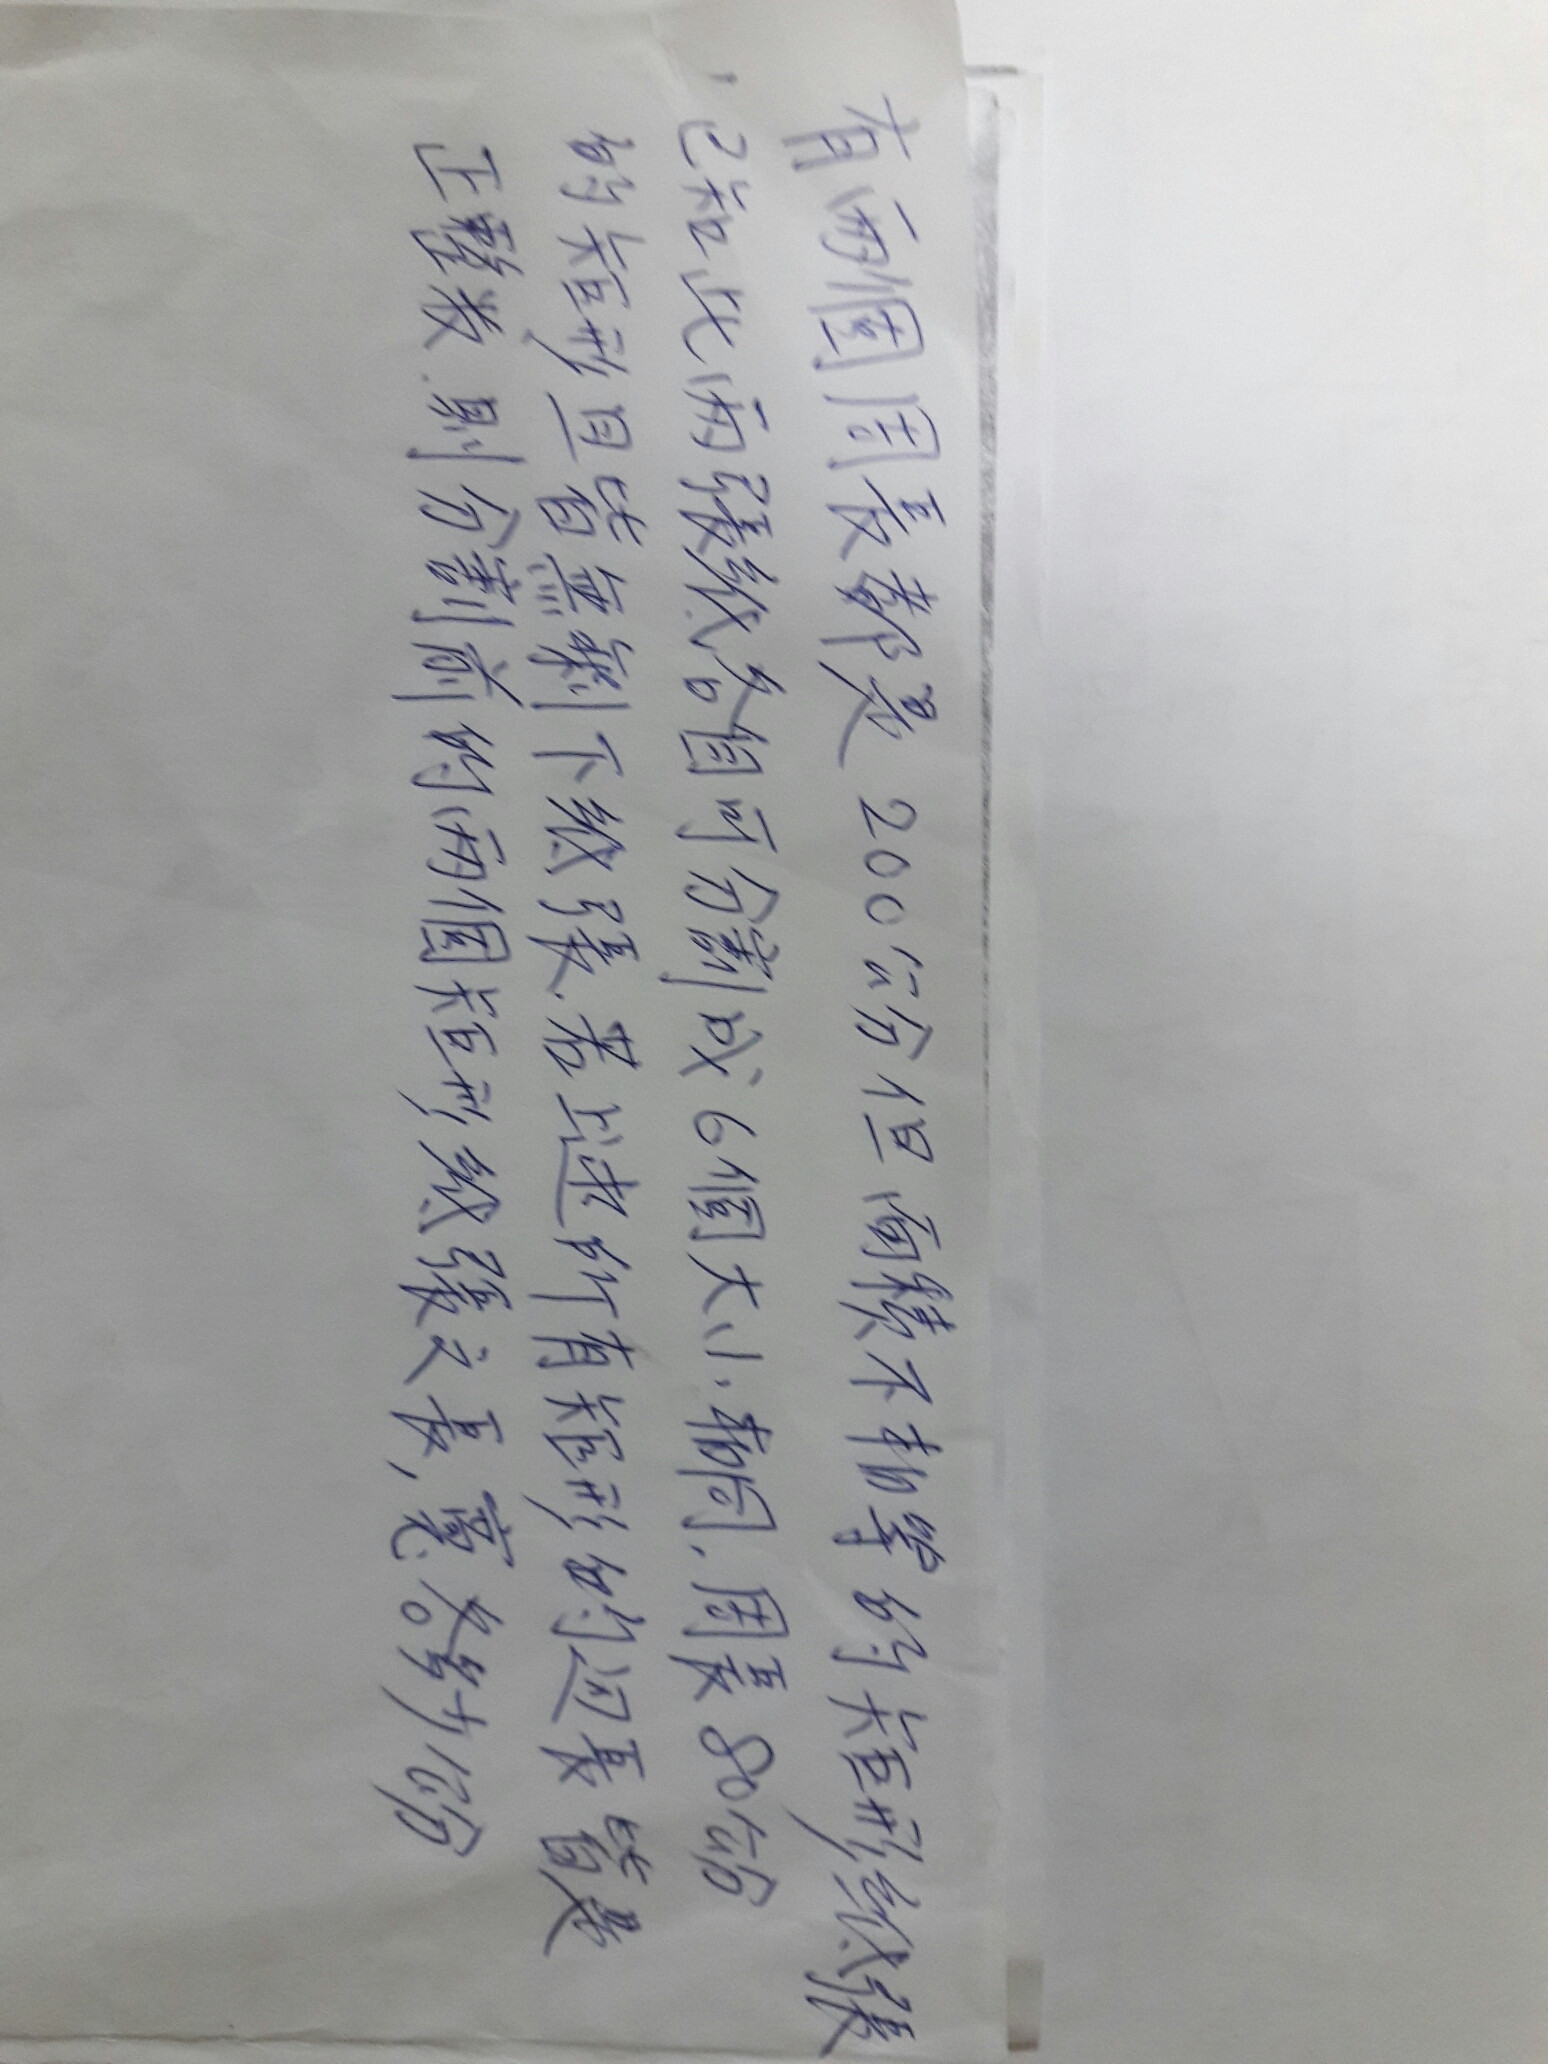 有兩個周長都是200公分但面積不相等的矩形紙張
,已知此兩張紙各自可分割成6個大小相同,周長80公分
的矩形且皆無剩下紙張.若上述所有矩形的边長皆是
正整数.則分割前的兩個矩形紙張之長,寬各多少公分